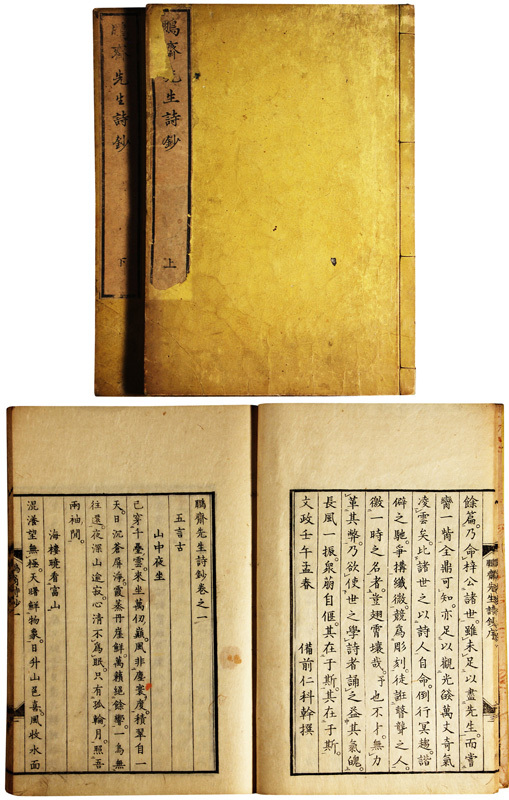 鵬齋先生詩鈔 上
齋先生詩鈔 下
餘篇。乃命梓公諸世。雖未足以盡先生。而嘗
臠一胾全鼎可知。亦足以觀光燄萬丈奇氣
凌雲矣。比諸世之以詩人自命。倒行冥趨。諧
僻之馳。爭搆纖微。競爲彫刻。徒誑瞽聾之人。
徼一時之名者。豈翅霄壤哉。予也不才。無力
革其弊。乃欲使世之學詩者誦之益其氣魄。
長風一振。衆蒭自偃。其在于斯。其在于斯。
文政壬午孟春
備前仁科幹撰
鵬齋先生詩鈔序
鵬齋先生詩鈔卷之一
五言古
山中夜坐
已穿千疊雲。來坐萬仞巔。風非塵寰度。積翠自一
天。日沒蒼屏淨。霞蒸丹崖鮮。萬籟絕餘響。一爲無
往還。夜深山逾寂。心清不爲眠。只有孤輪月。照吾
兩袖間。
海樓曉看富山
混瀁望無極。天曙鮮物象。日升山色喜。風收水面